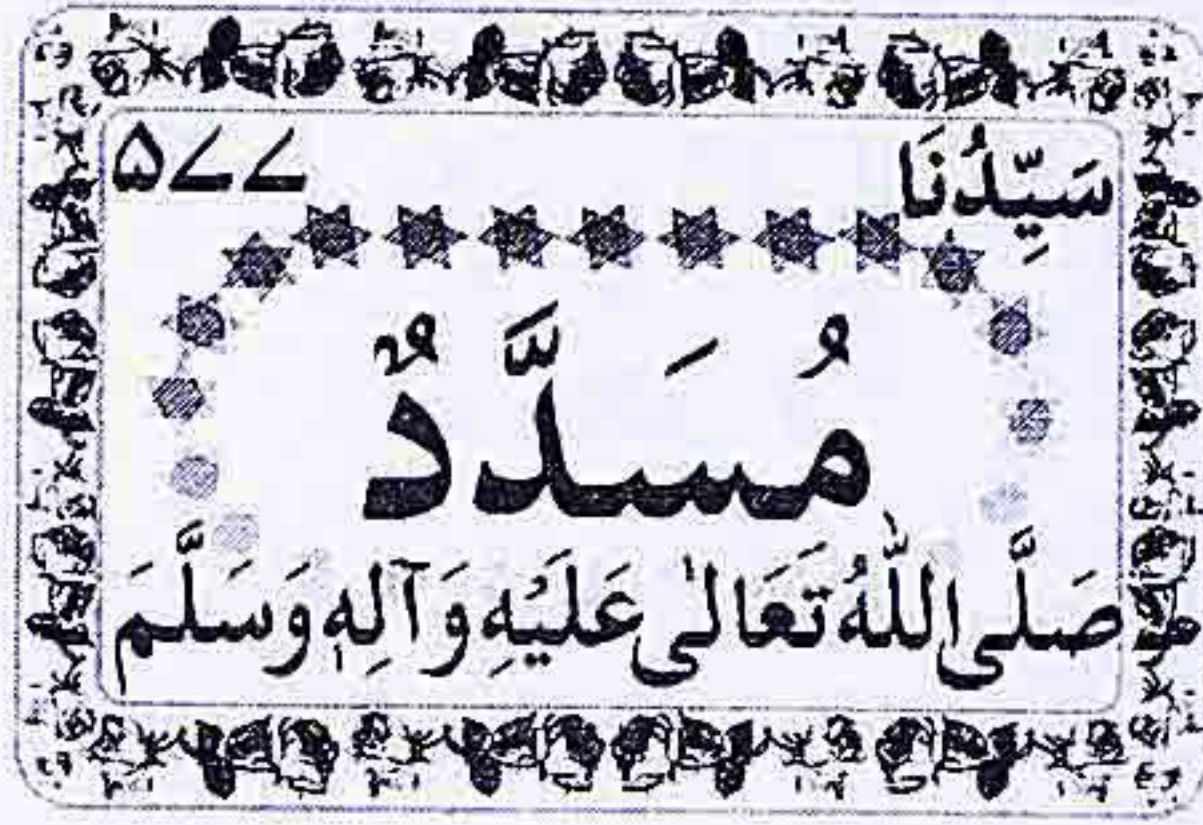 سَيِّدُنَا ۵۷۷
مُسَدَّدٌ
صَلَّى اللّٰهُ تَعَالٰى عَلَيْهِ وَآلِهٖ وَسَلَّمَ